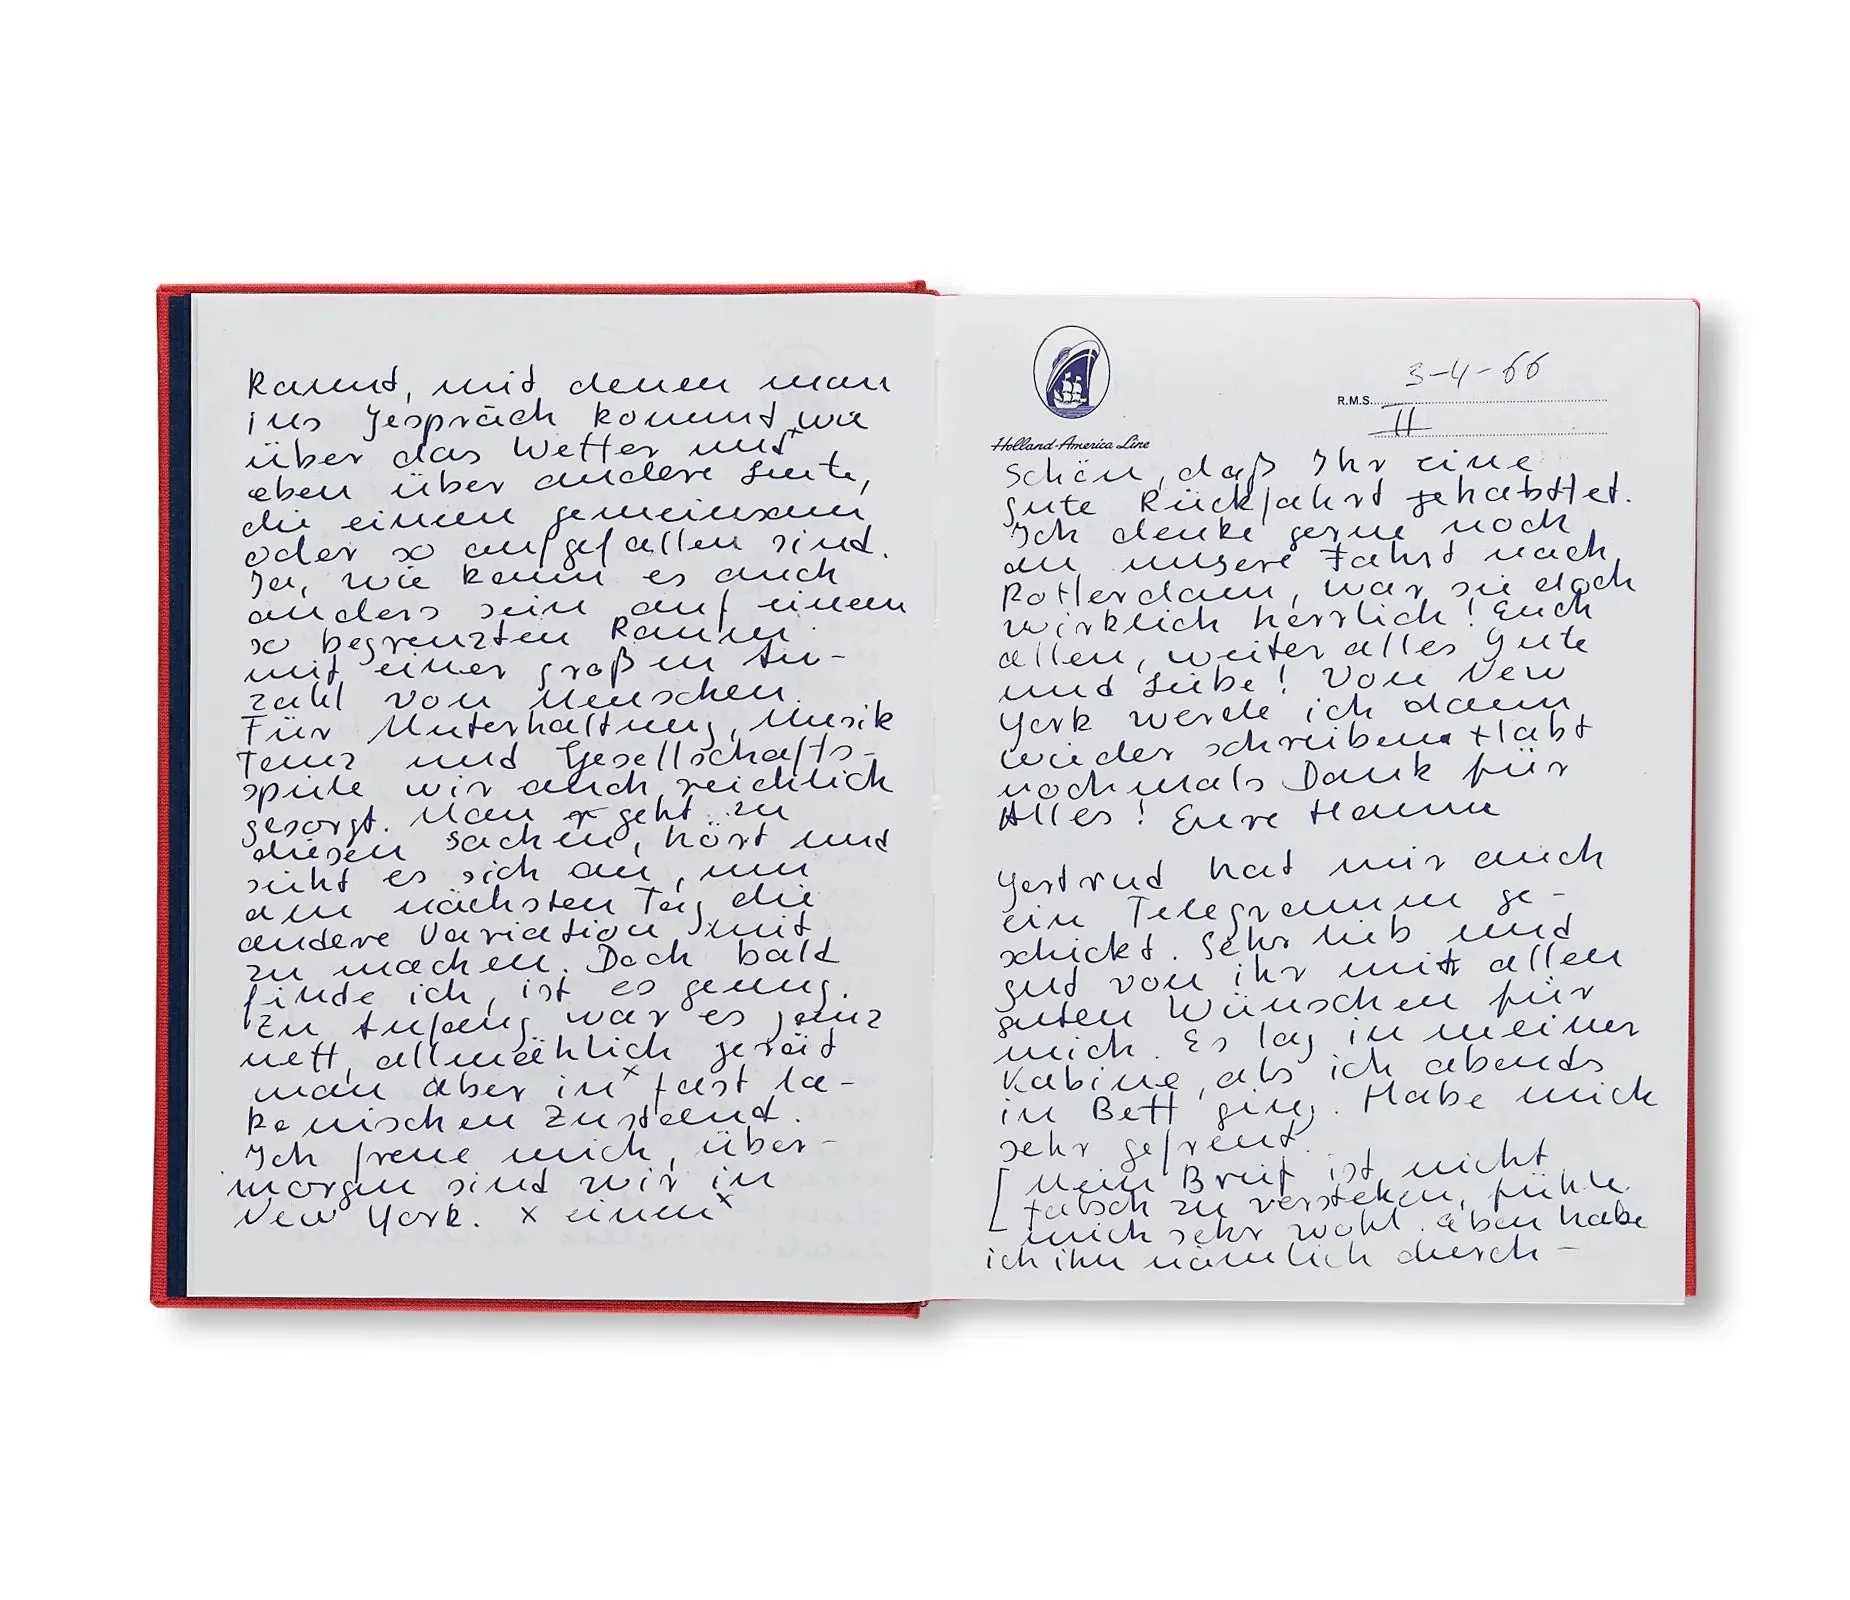 kannt, mit denen man
ins Gespräch kommt wie
über das Wetter und
eben über andere Leute,
die einem gemeinsam
oder so aufgefallen sind.
Ja, wie kann es auch
anders sein auf einem
so begrenzten Raum
mit einer großen An-
zahl von Menschen.
Für Unterhaltung, Musik
Tanz und Gesellschafts-
spiele wir auch reichlich
gesorgt. Man geht zu
diesen Sachen, hört und
sieht es sich an, um
am nächsten Tag die
andere Variation mit
zu machen. Doch bald
finde ich, ist es genug.
Zu Anfang war es ganz
nett, allmählich gerät
man aber in x fast la-
konischen Zustand.
Ich freue mich, über-
morgen sind wir in
New York. x einen x
Holland-America Line
3-4-66
R.M.S.
II
Schön, daß Ihr eine
gute Rückfahrt gehabt
Ich denke gerne noch
an unsere Fahrt nach
Rotterdam, war sie doch
wirklich herrlich! Euch
allen, weiter alles Gute
und Liebe! Von New
York werde ich dann
wieder schreiben. Habt
nochmals Dank für
Alles! Eure Hanne
Gertrud hat mir auch
ein Telegramm ge-
schickt. Sehr lieb und
gut von ihr mit allen
guten Wünschen für
mich. Es lag in meiner
Kabine, als ich abends
in Bett ging. Habe mich
sehr gefreut.
[ Mein Brief ist nicht
falsch zu verstehen, fühle
mich sehr wohl. eben habe
ich ihn nämlich durch-